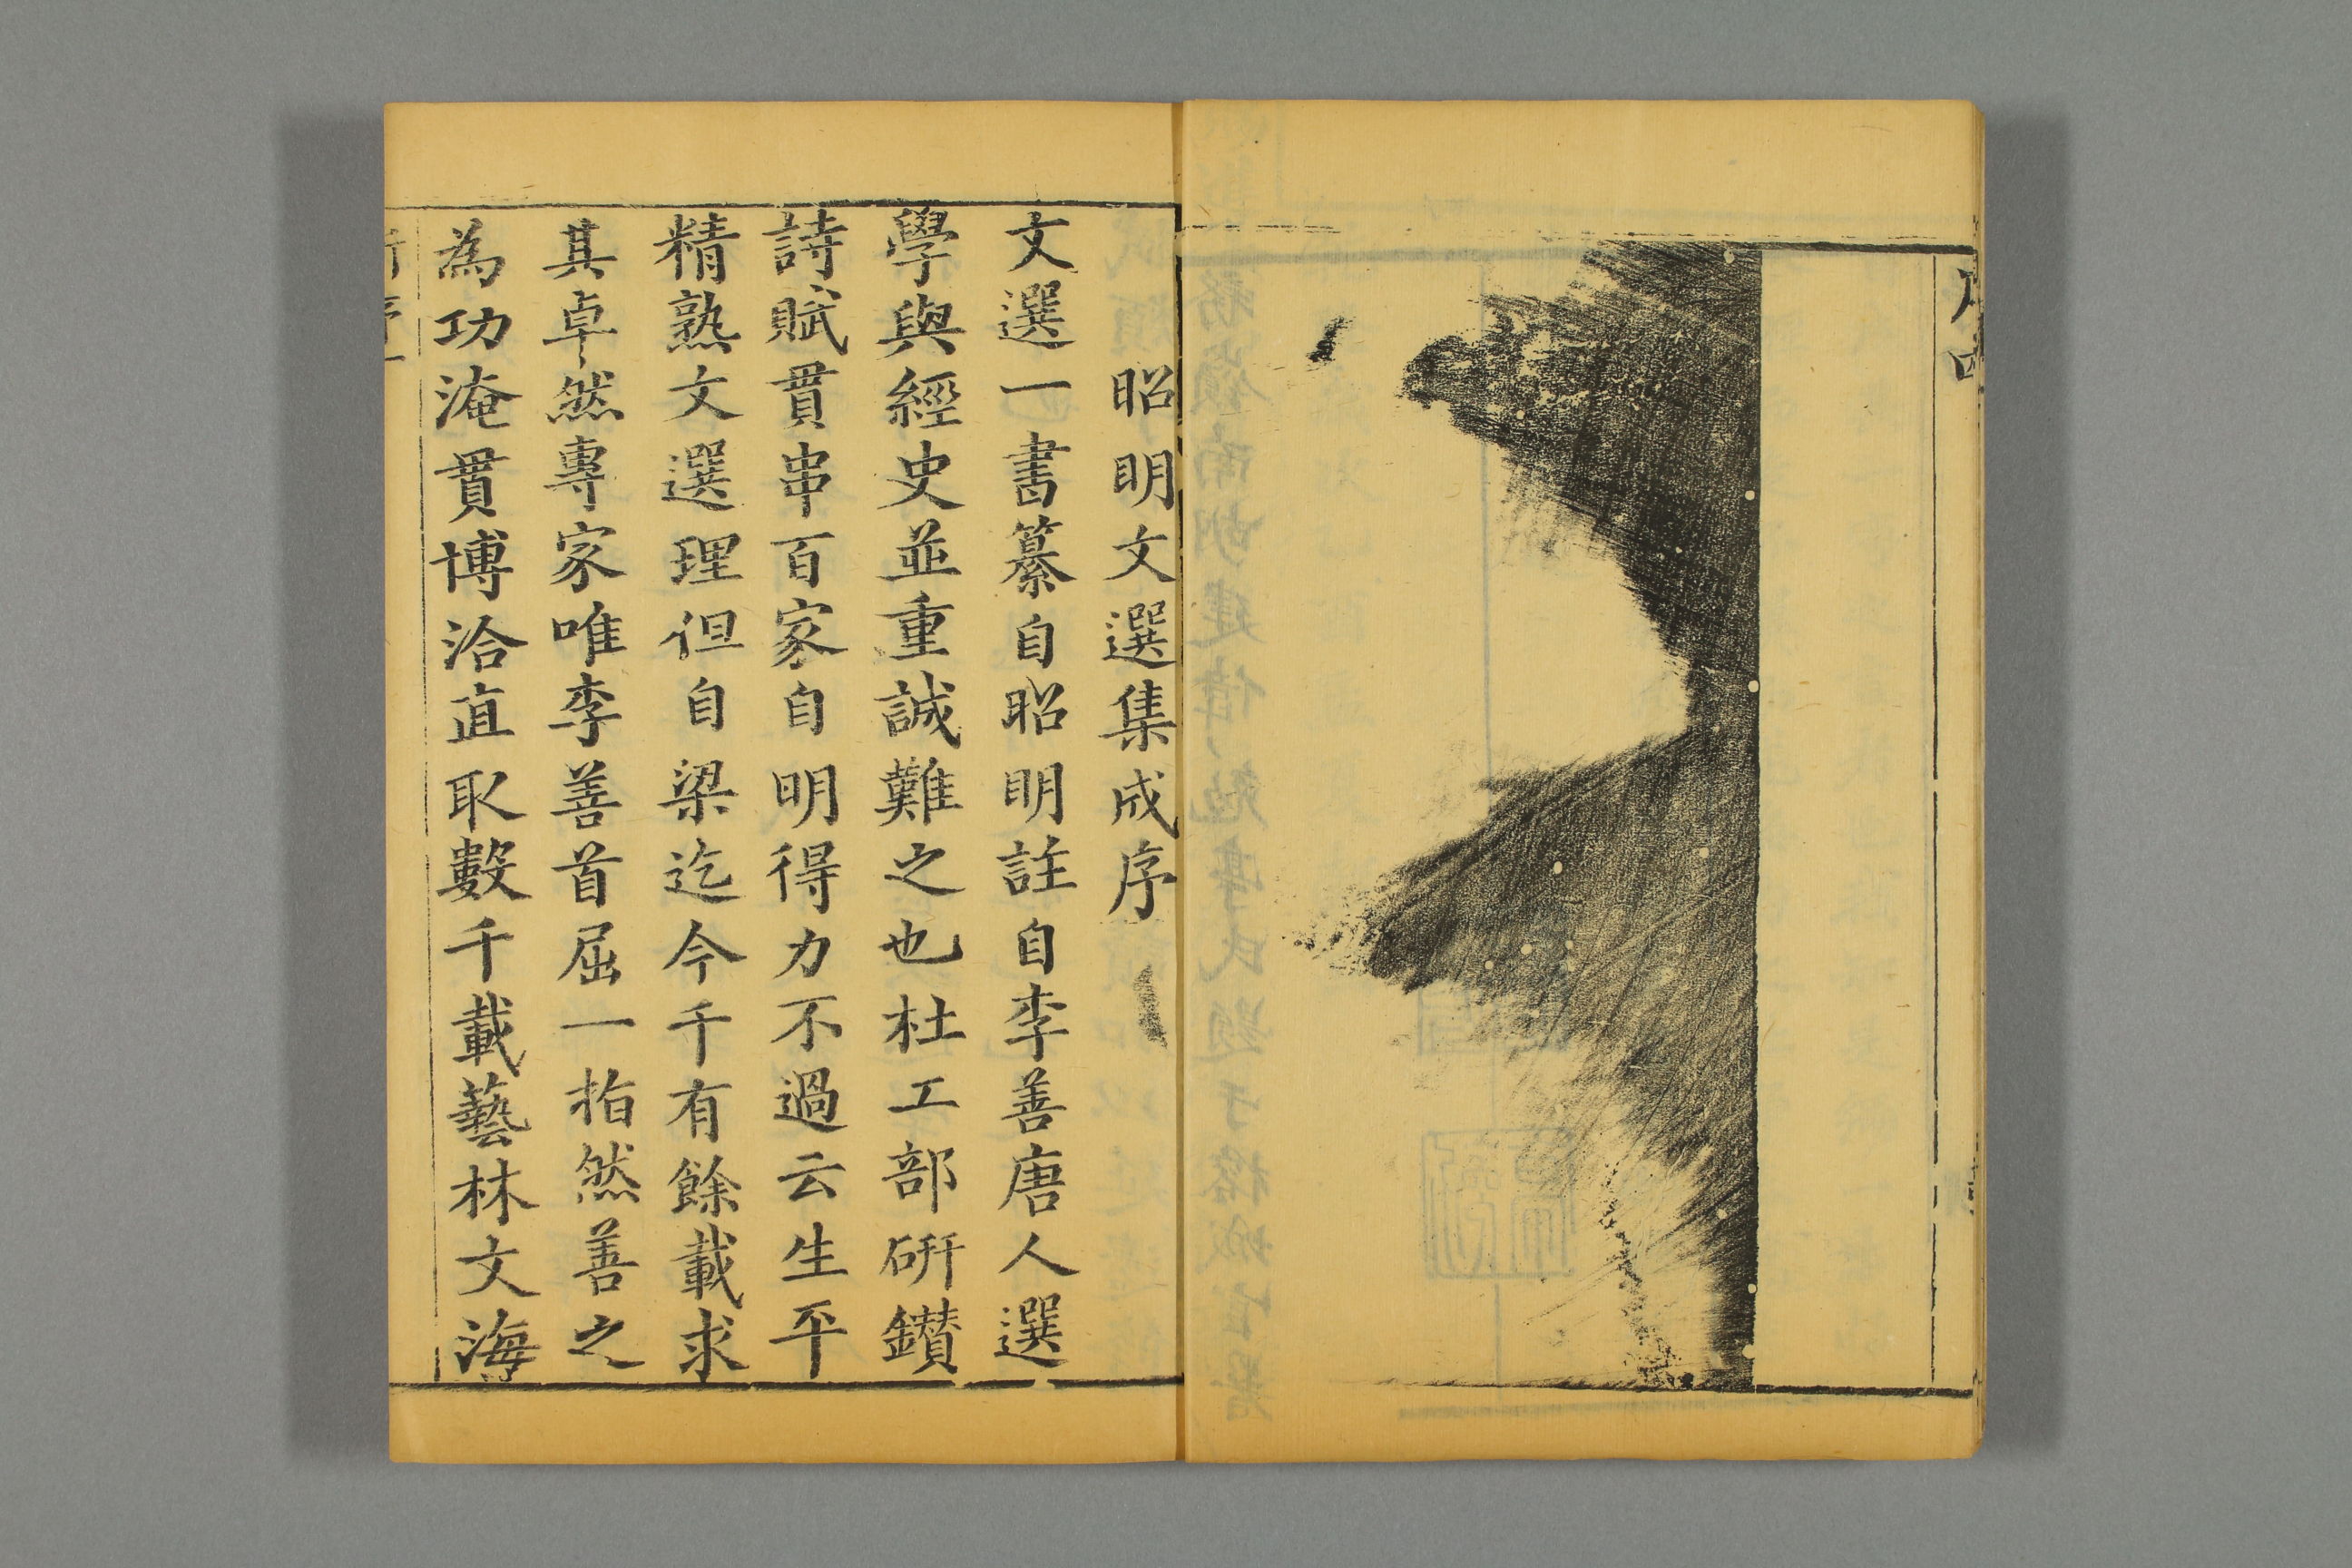 昭明文選集成序
文選一書纂自昭明註自李善唐人選
學與經史並重誠難之也杜工部研鑚
詩賦貫串百家自明得力不過云生平
精熟文選理但自梁迄今千有餘載求
其卓然專家唯李善首屈一指然善之
為功淹貫博洽直取數千載藝林文海